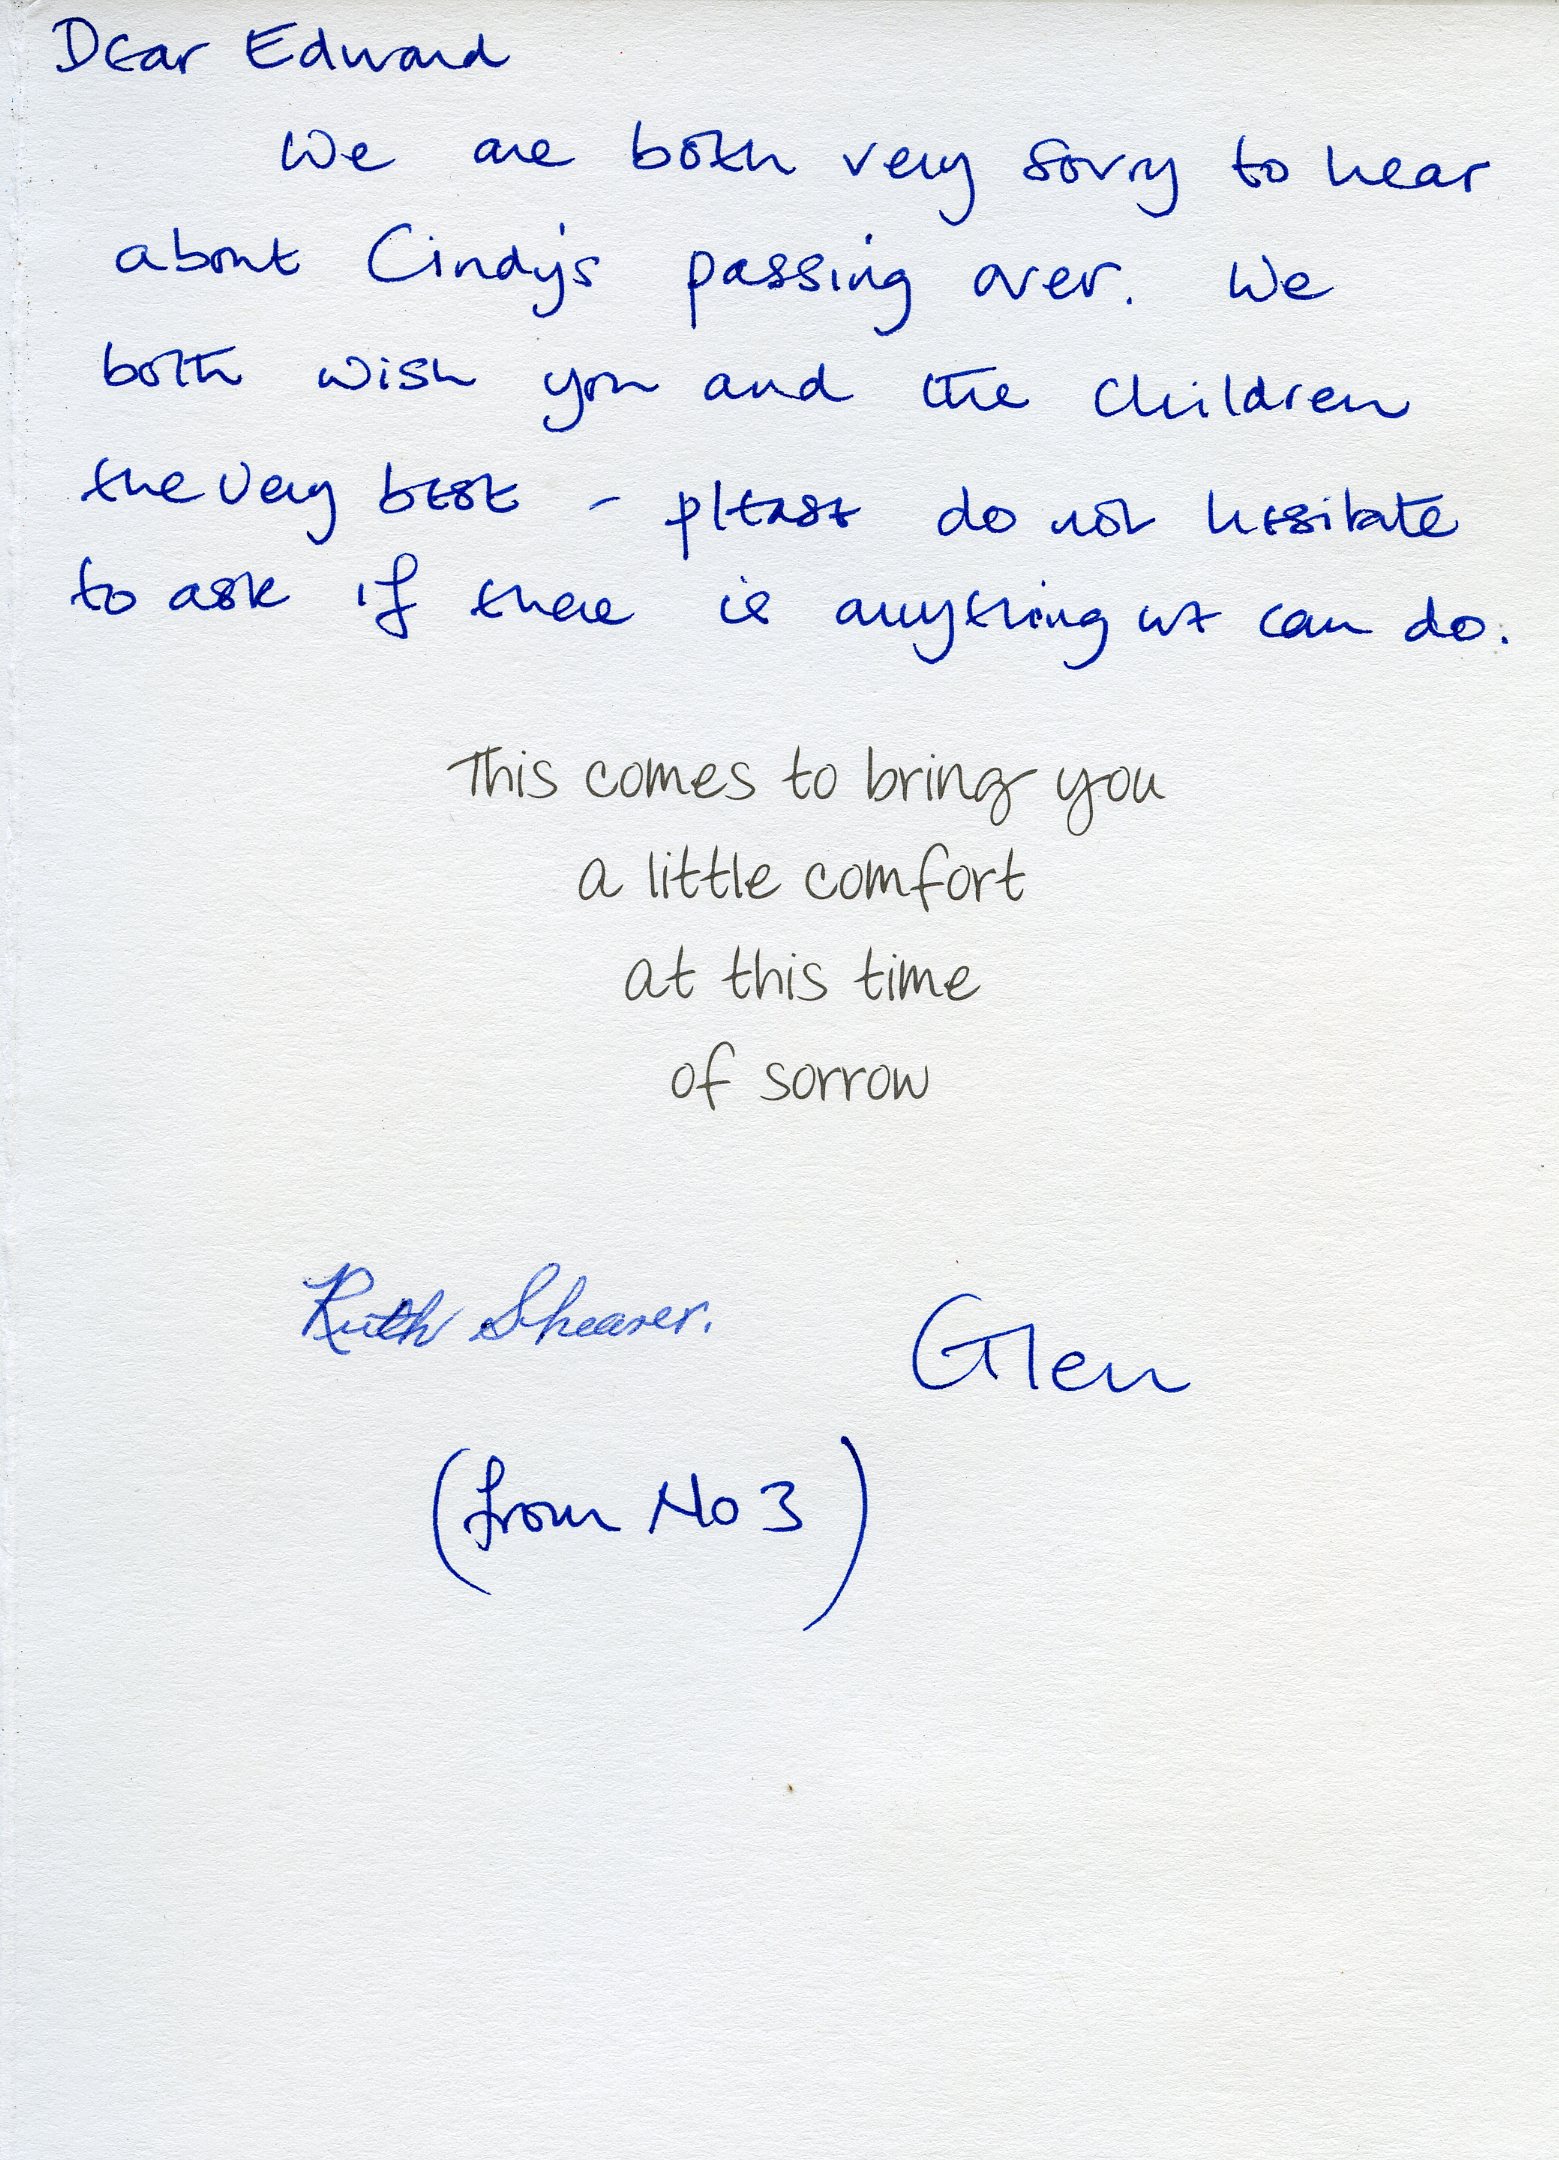 Dear Edward
We are both very sorry to hear
about Cindy's passing over. We
both wish you and the children
the very best - please do not hesitate
to ask if there is anything we can do.
This comes to bring you
a little comfort
at this time
of sorrow
Ruth Shearer.
Glen
(from No 3)